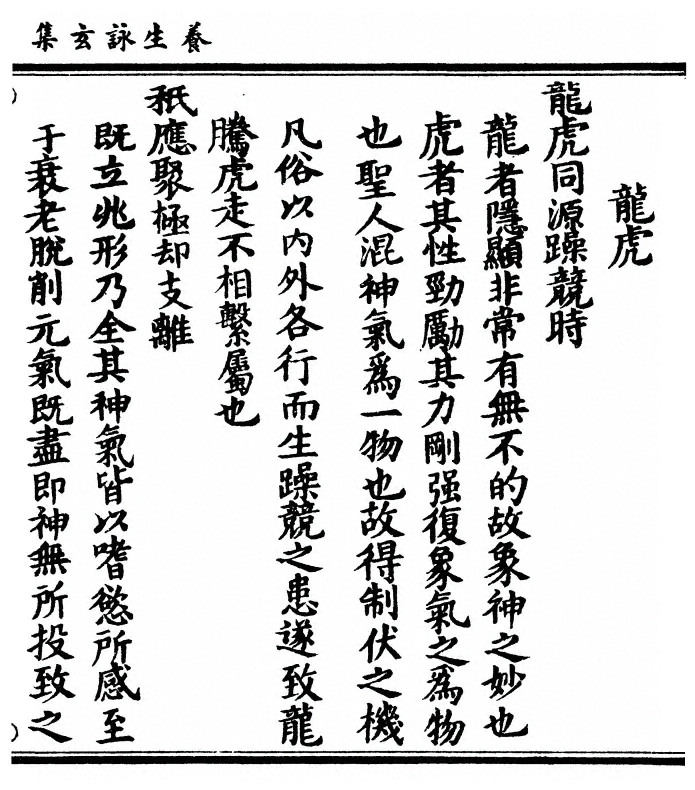 養生詠玄集
龍虎
龍虎同源躁競時
龍者隱顯非常有無不的故象神之妙也
虎者其性勁勵其力剛强復象氣之爲物
也聖人混神氣爲一物也故得制伏之機
凡俗以内外各行而生躁競之患遂致龍
騰虎走不相繫屬也
秖應聚極却支離
既立兆形乃全其神氣皆以嗜慾所感至
于衰老脫削元氣既盡即神無所投致之